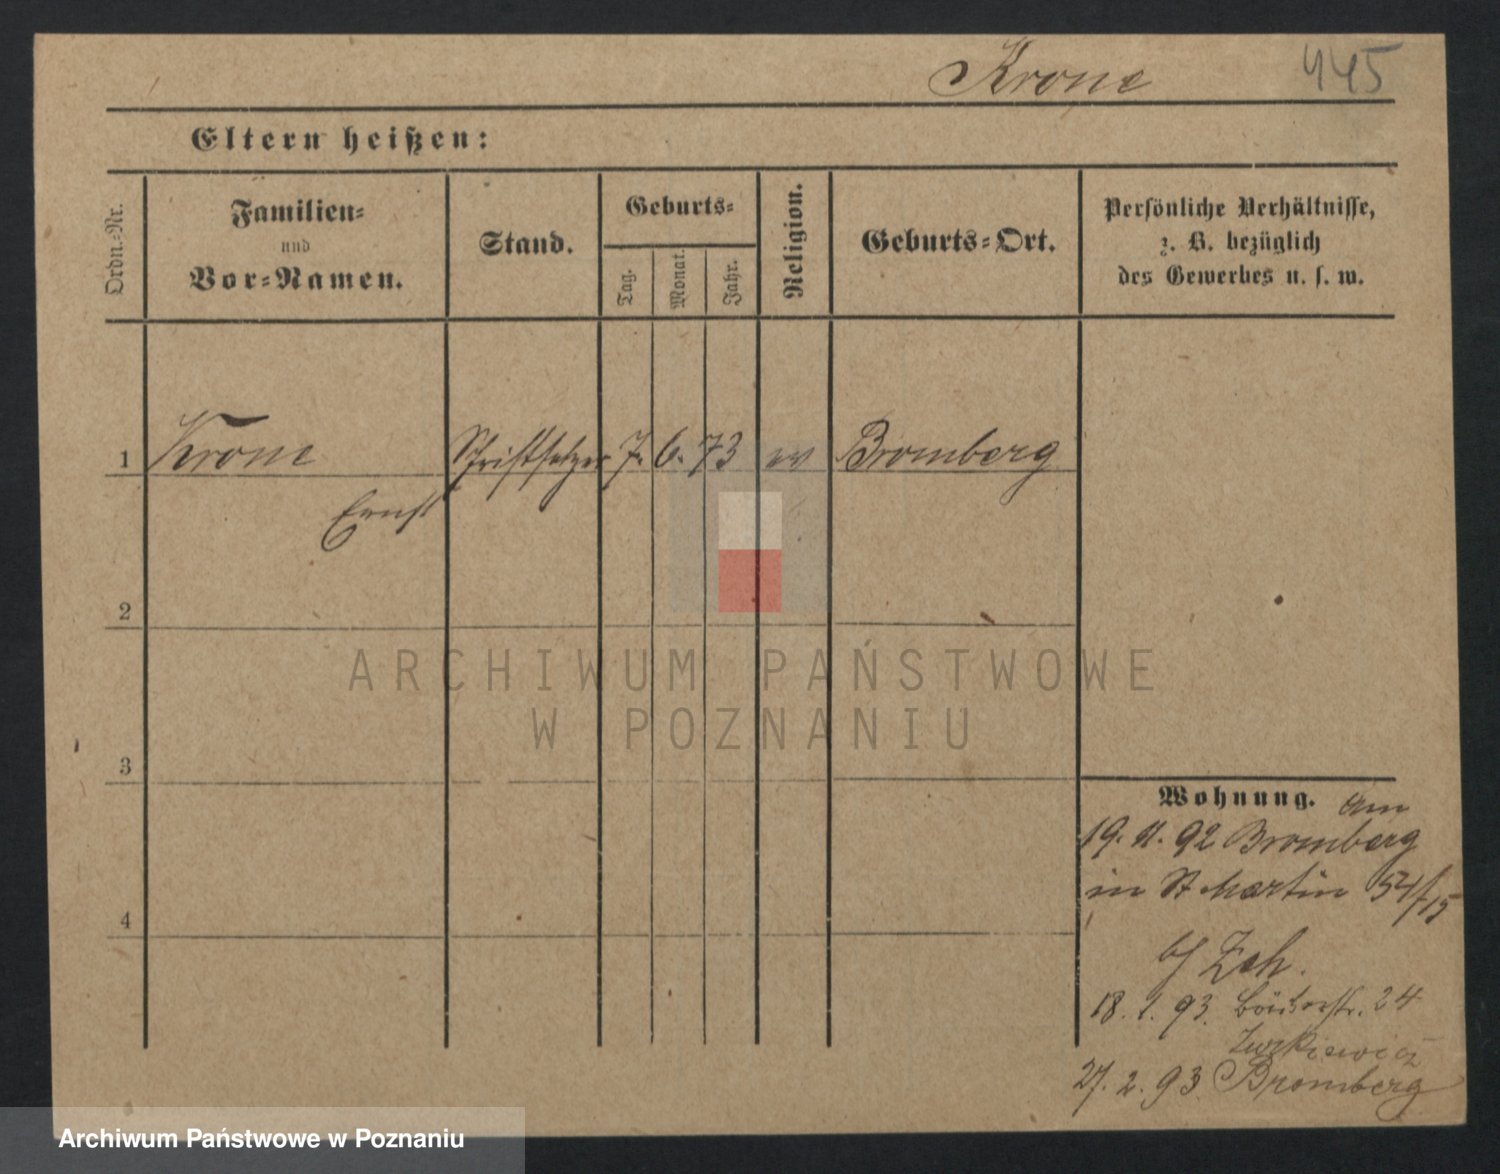 Krone 445
Eltern heißen:
Ordn.-Nr.
Familien-
und
Vor-Namen.
Stand.
Geburts-
Tag.
Monat.
Jahr.
Religion.
Geburts-Ort.
Persönliche Verhältnisse,
z. B. bezüglich
des Gewerbes u. s. w.
1 Krone Schriftsetzer 7. 6. 73 ev Bromberg
Ernst
2
3
4
ARCHIWUM PAŃSTWOWE
W POZNANIU
Wohnung. am
19. 11. 92 Bromberg
in St Martin 54/15
b/
18. 1. 93. 24
27. 2. 93. Bromberg
Archiwum Państwowe w Poznaniu